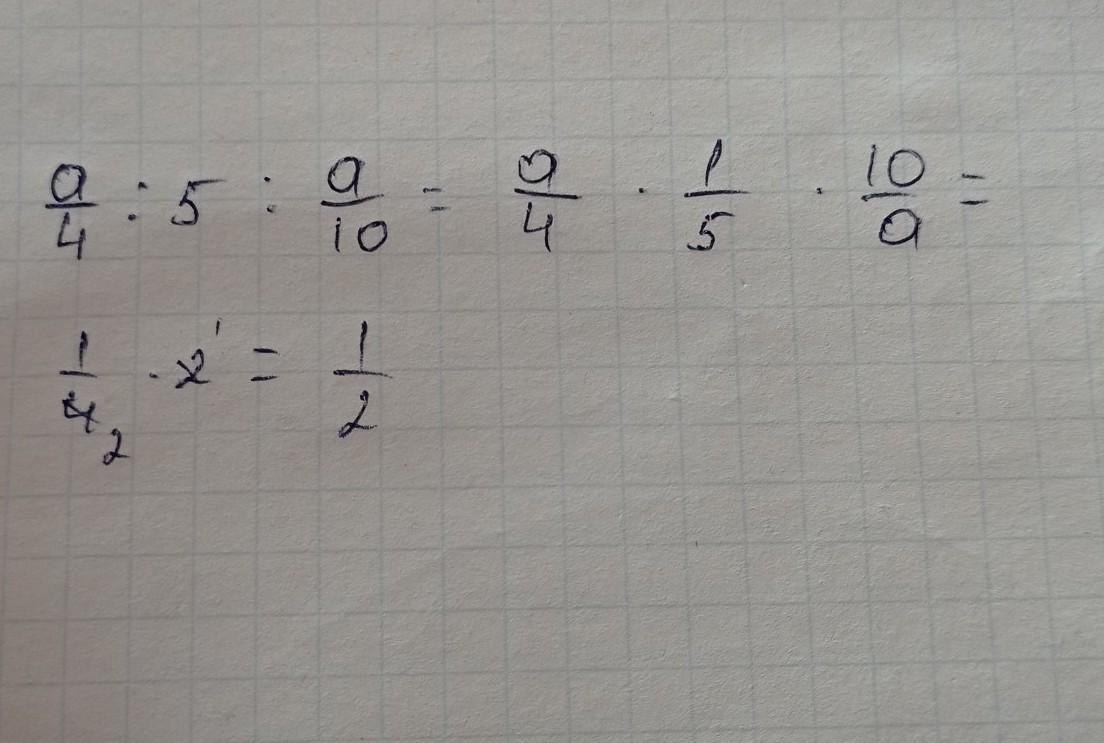 a/4 : 5 : a/10 = a/4 · 1/5 · 10/a =
1/4 2 · 2 1 = 1/2